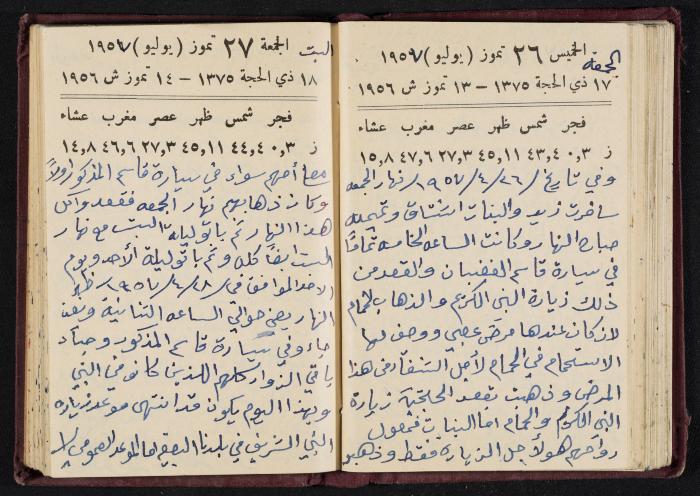 الجمعة
الخميس ٢٦ تموز (يوليو) ١٩٥٧
١٧ ذي الحجة ١٣٧٥ – ١٣ تموز ش ١٩٥٦
فجر شمس ظهر عصر مغرب عشاء
ز ٠,٣ ٤٣,٤ ٤٥,١١ ٢٧,٣ ٤٧,٦ ١٥,٨
وفي تاريخ ٢٦/٤/١٩٥٧/ نهار الجمعه
سافرت زيد والبنات اشتياق وتميمه
صباح النهار وكانت الساعه الخامسه تماماً
في سيارة قاسم الغضبان والقصد من
ذلك زيارة النبي الكريم والذهاب لحمام
لان كان عندها مرض عصبي ووصف لها
الاستحمام في الحمام لأجل الشفاء من هذا
المرض وذهبت بقصد الحاجتين زيارة
النبي الكريم والحمام اما البنات فيقول
رواحهم هولا جل الزياره فقط وذهبو
السبت
الجمعة ٢٧ تموز (يوليو) ١٩٥٧
١٨ ذي الحجة ١٣٧٥ – ١٤ تموز ش ١٩٥٦
فجر شمس ظهر عصر مغرب عشاء
ز ٠,٣ ٤٤,٤ ٤٥,١١ ٢٧,٣ ٤٦,٦ ١٤,٨
معاً أجمعهم سواء في سيارة قاسم المذكور اولاً
وكان ذهابهم نهار الجمعه فقعدوا كل
هذا النهار ثم باتو ليلة السبت مع نهار
السبت ايضاً كله وثم باتو ليلة الأحد ويوم
الاحد الموافق في ٢٨/٤/١٩٥٧/ ظهر
النهار يعني حوالي الساعه الثانية ونصف
جاءو في سيارة قاسم المذكور وجاء
باقي الزوار كلهم اللذين كانو في النبي
وبهذا اليوم يكون قد انتهى موعد زياره
النبي الشريف في بلدنا اما الموعد العمومي